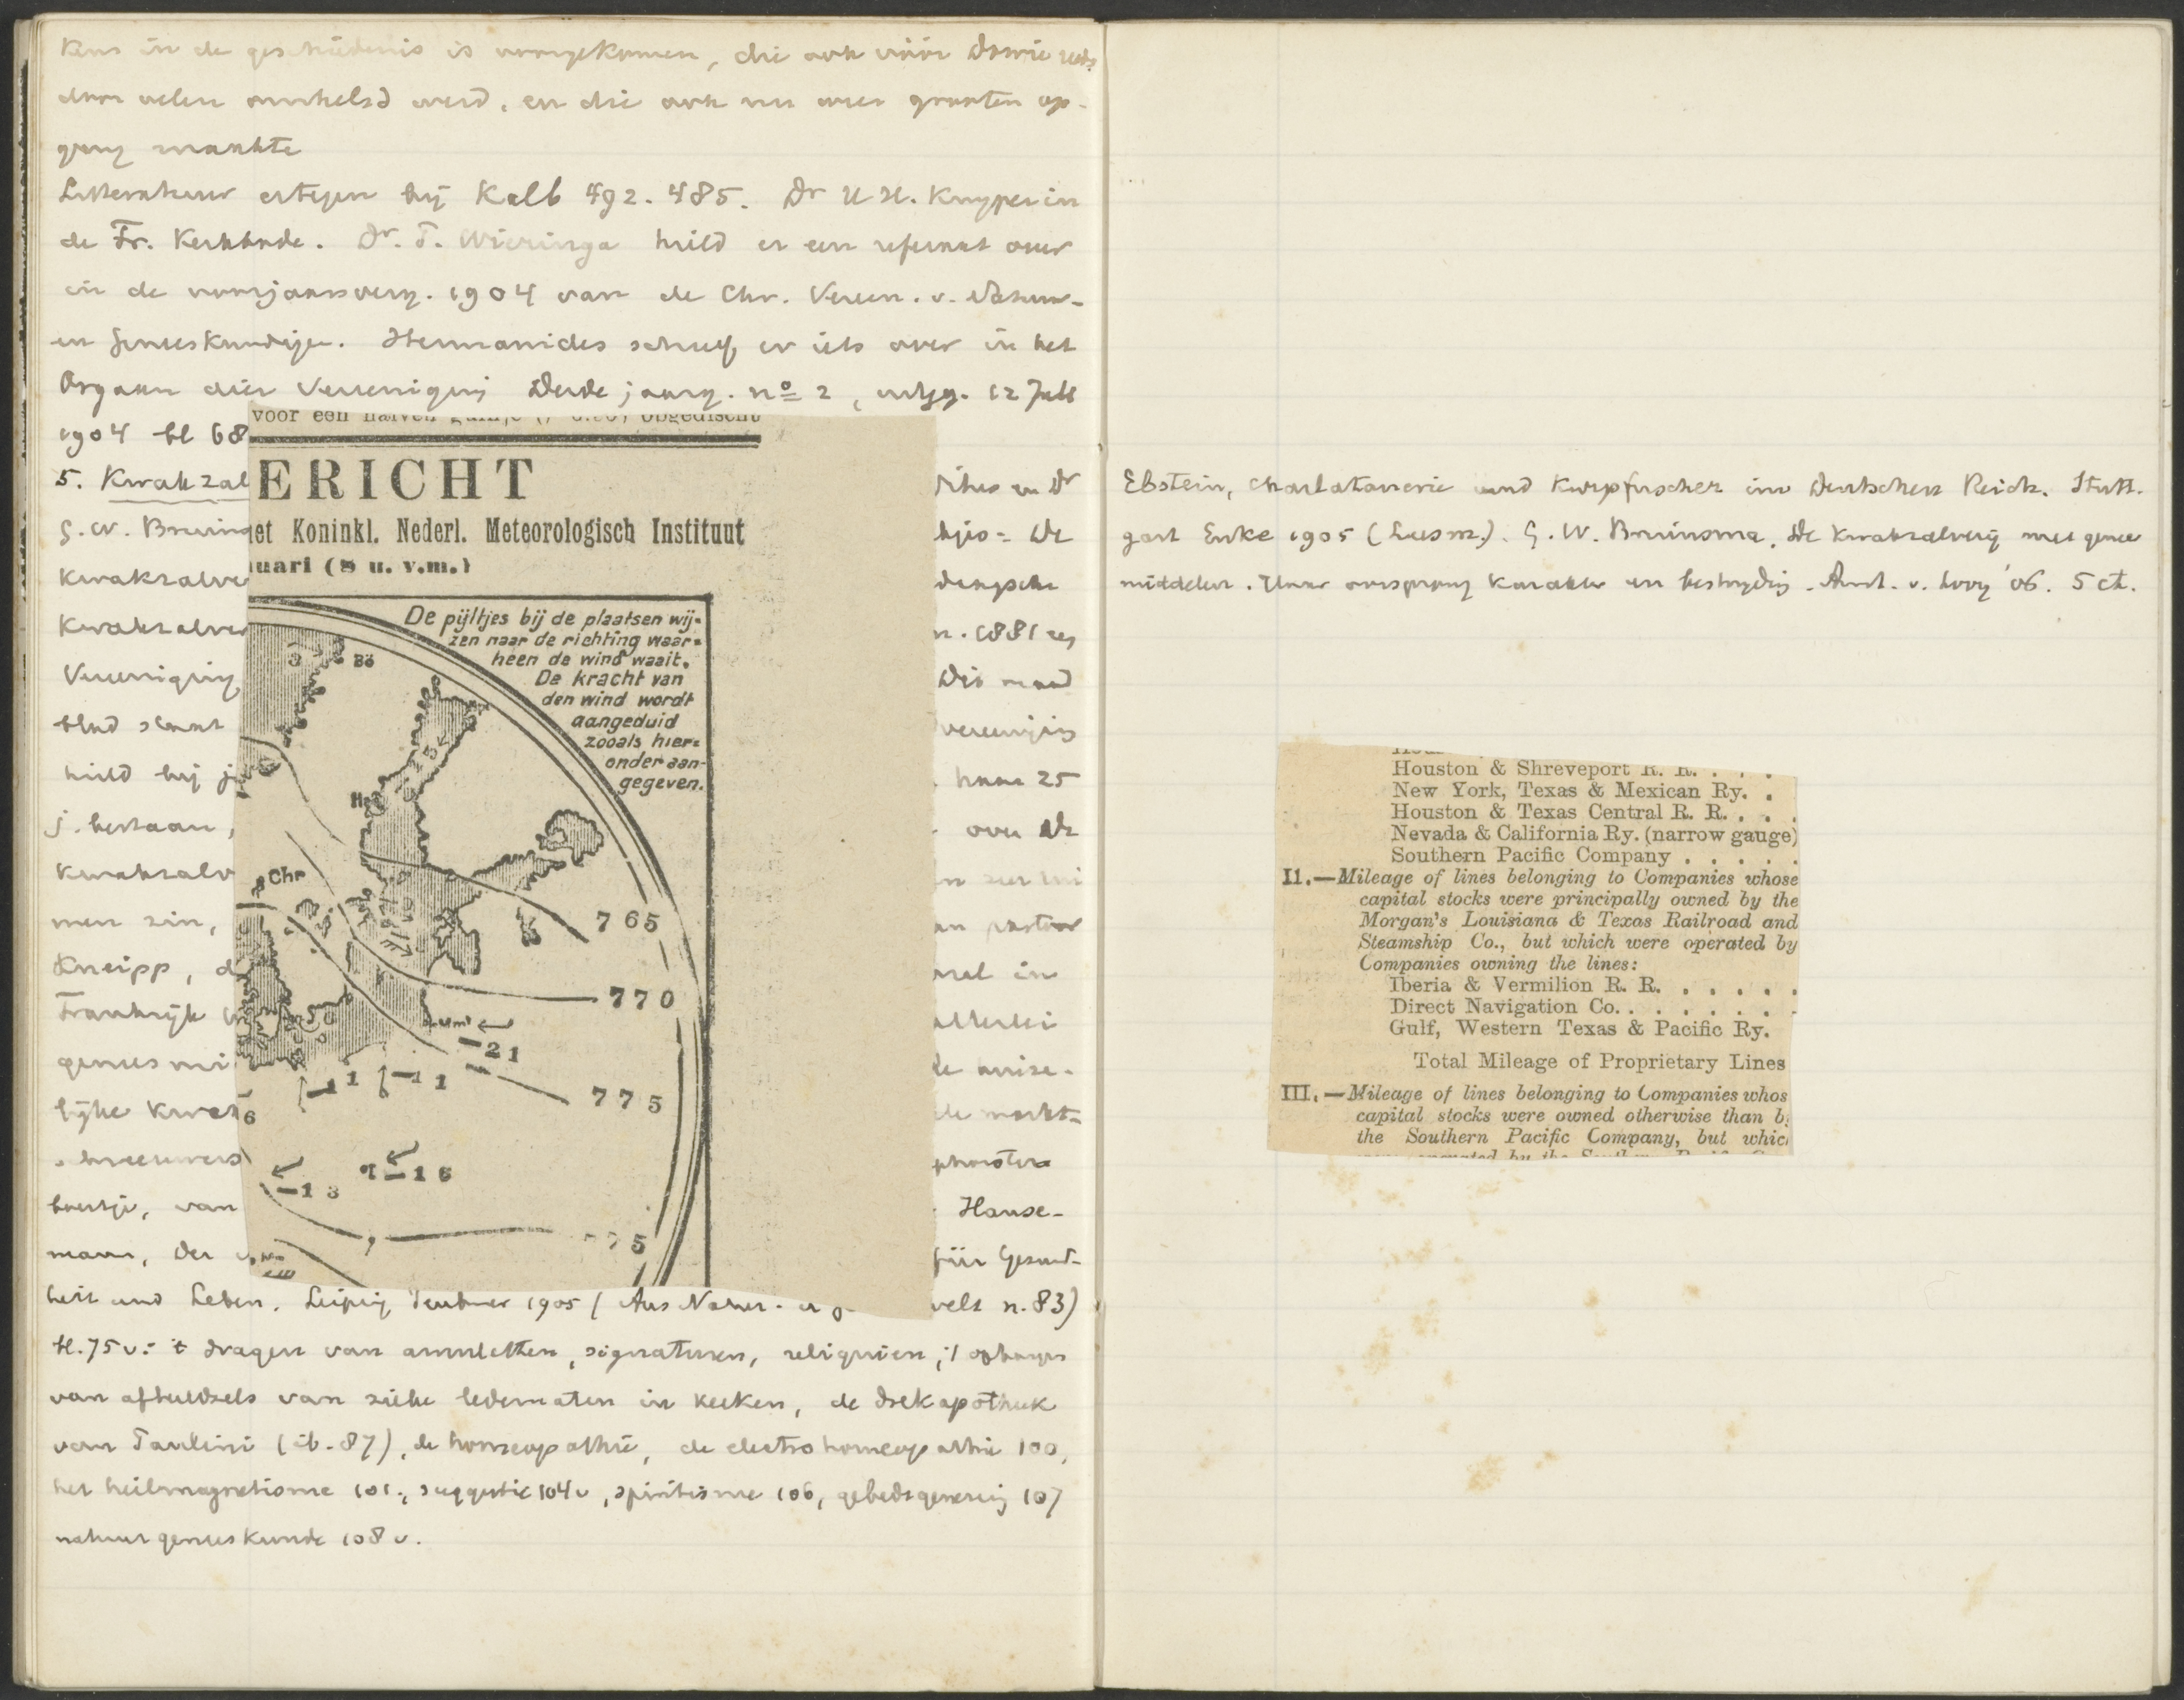 Kens in de geschiedenis is voorgekomen, die ook vóór Dowie reeds
door velen omhelsd werd, en die ook nu weer grooten op-
gang maakte
Litteratuur ertegen bij Kalb 492. 485. Dr H H. Kuyper in
de Fr. Kerkbode. Dr. T. Wieringa hield er een referaat over
in de voorjaarsverg. 1904 van de Chr. Vereen. v. Natuur-
en Geneeskundigen. Hermanides schreef er iets over in het
Orgaan dier Vereeniging Derde jaarg. no 2, uitgg. 12 Juli
1904 bl 68
5. Kwakzal
G. W. Bruin
Kwakzalve
Kwakzalver
Vereeniging
blad staat
hield hij
j. bestaan,
kwakzalv
men zin,
Kneipp,
Frankrijk
genees mi
lijke Kwak
schreeuwers
beestje, van
mann, Der
voor een halven
ERICHT
et Koninkl. Nederl. Meteorologisch Instituut
uari (8 u. v.m.)
De pijltjes bij de plaatsen wij-
zen naar de richting waar-
heen de wind waait.
De kracht van
den wind wordt
aangeduid
zooals hier-
onder aan-
gegeven.
3 Bö
5
Chr
765
770
-21
1 1
775
6
-13 -16
5
en Dr
De
1881
Dit maand
25
over De
pastoor
in
allerlei
de markt-
Hanse-
für Gesund-
heit und Leben. Leipzig Teubner 1905 (Aus Natur- u welt n. 83)
bl. 75 v: 't dragen van amuletten, signaturen, reliquien, 't ophangen
van afbeeldsels van zieke ledematen in kerken, de drekapotheek
van Paulini (ib. 87), de homeopathie, de electrohomeopathie 100,
het heilmagnetisme 101, suggestie 104 v, spiritisme 106, gebedsgenezing 107
natuurgeneeskunde 108 v.
Ebstein, Charlatanerie und Kurpfuscher im Deutschen Reich. Stutt-
gart Enke 1905 (Leesm.). G. W. Bruinsma, De Kwakzalverij met genees
middelen. Haar oorsprong karakter en bestrijding. Amst. v. Looy '06. 5 ct.
Houston & Shreveport R. R. . . .
New York, Texas & Mexican Ry. .
Houston & Texas Central R. R. . . .
Nevada & California Ry. (narrow gauge)
Southern Pacific Company . . . . .
II.—Mileage of lines belonging to Companies whose
capital stocks were principally owned by the
Morgan's Louisiana & Texas Railroad and
Steamship Co., but which were operated by
Companies owning the lines:
Iberia & Vermilion R. R. . . . . .
Direct Navigation Co. . . . . . . .
Gulf, Western Texas & Pacific Ry.
Total Mileage of Proprietary Lines
III.—Mileage of lines belonging to Companies whos
capital stocks were owned otherwise than b
the Southern Pacific Company, but whic